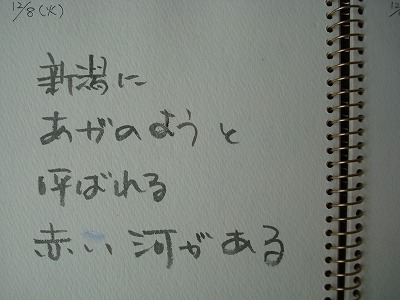 12/8(火)
新潟に
あがのようと
呼ばれる
赤い河がある